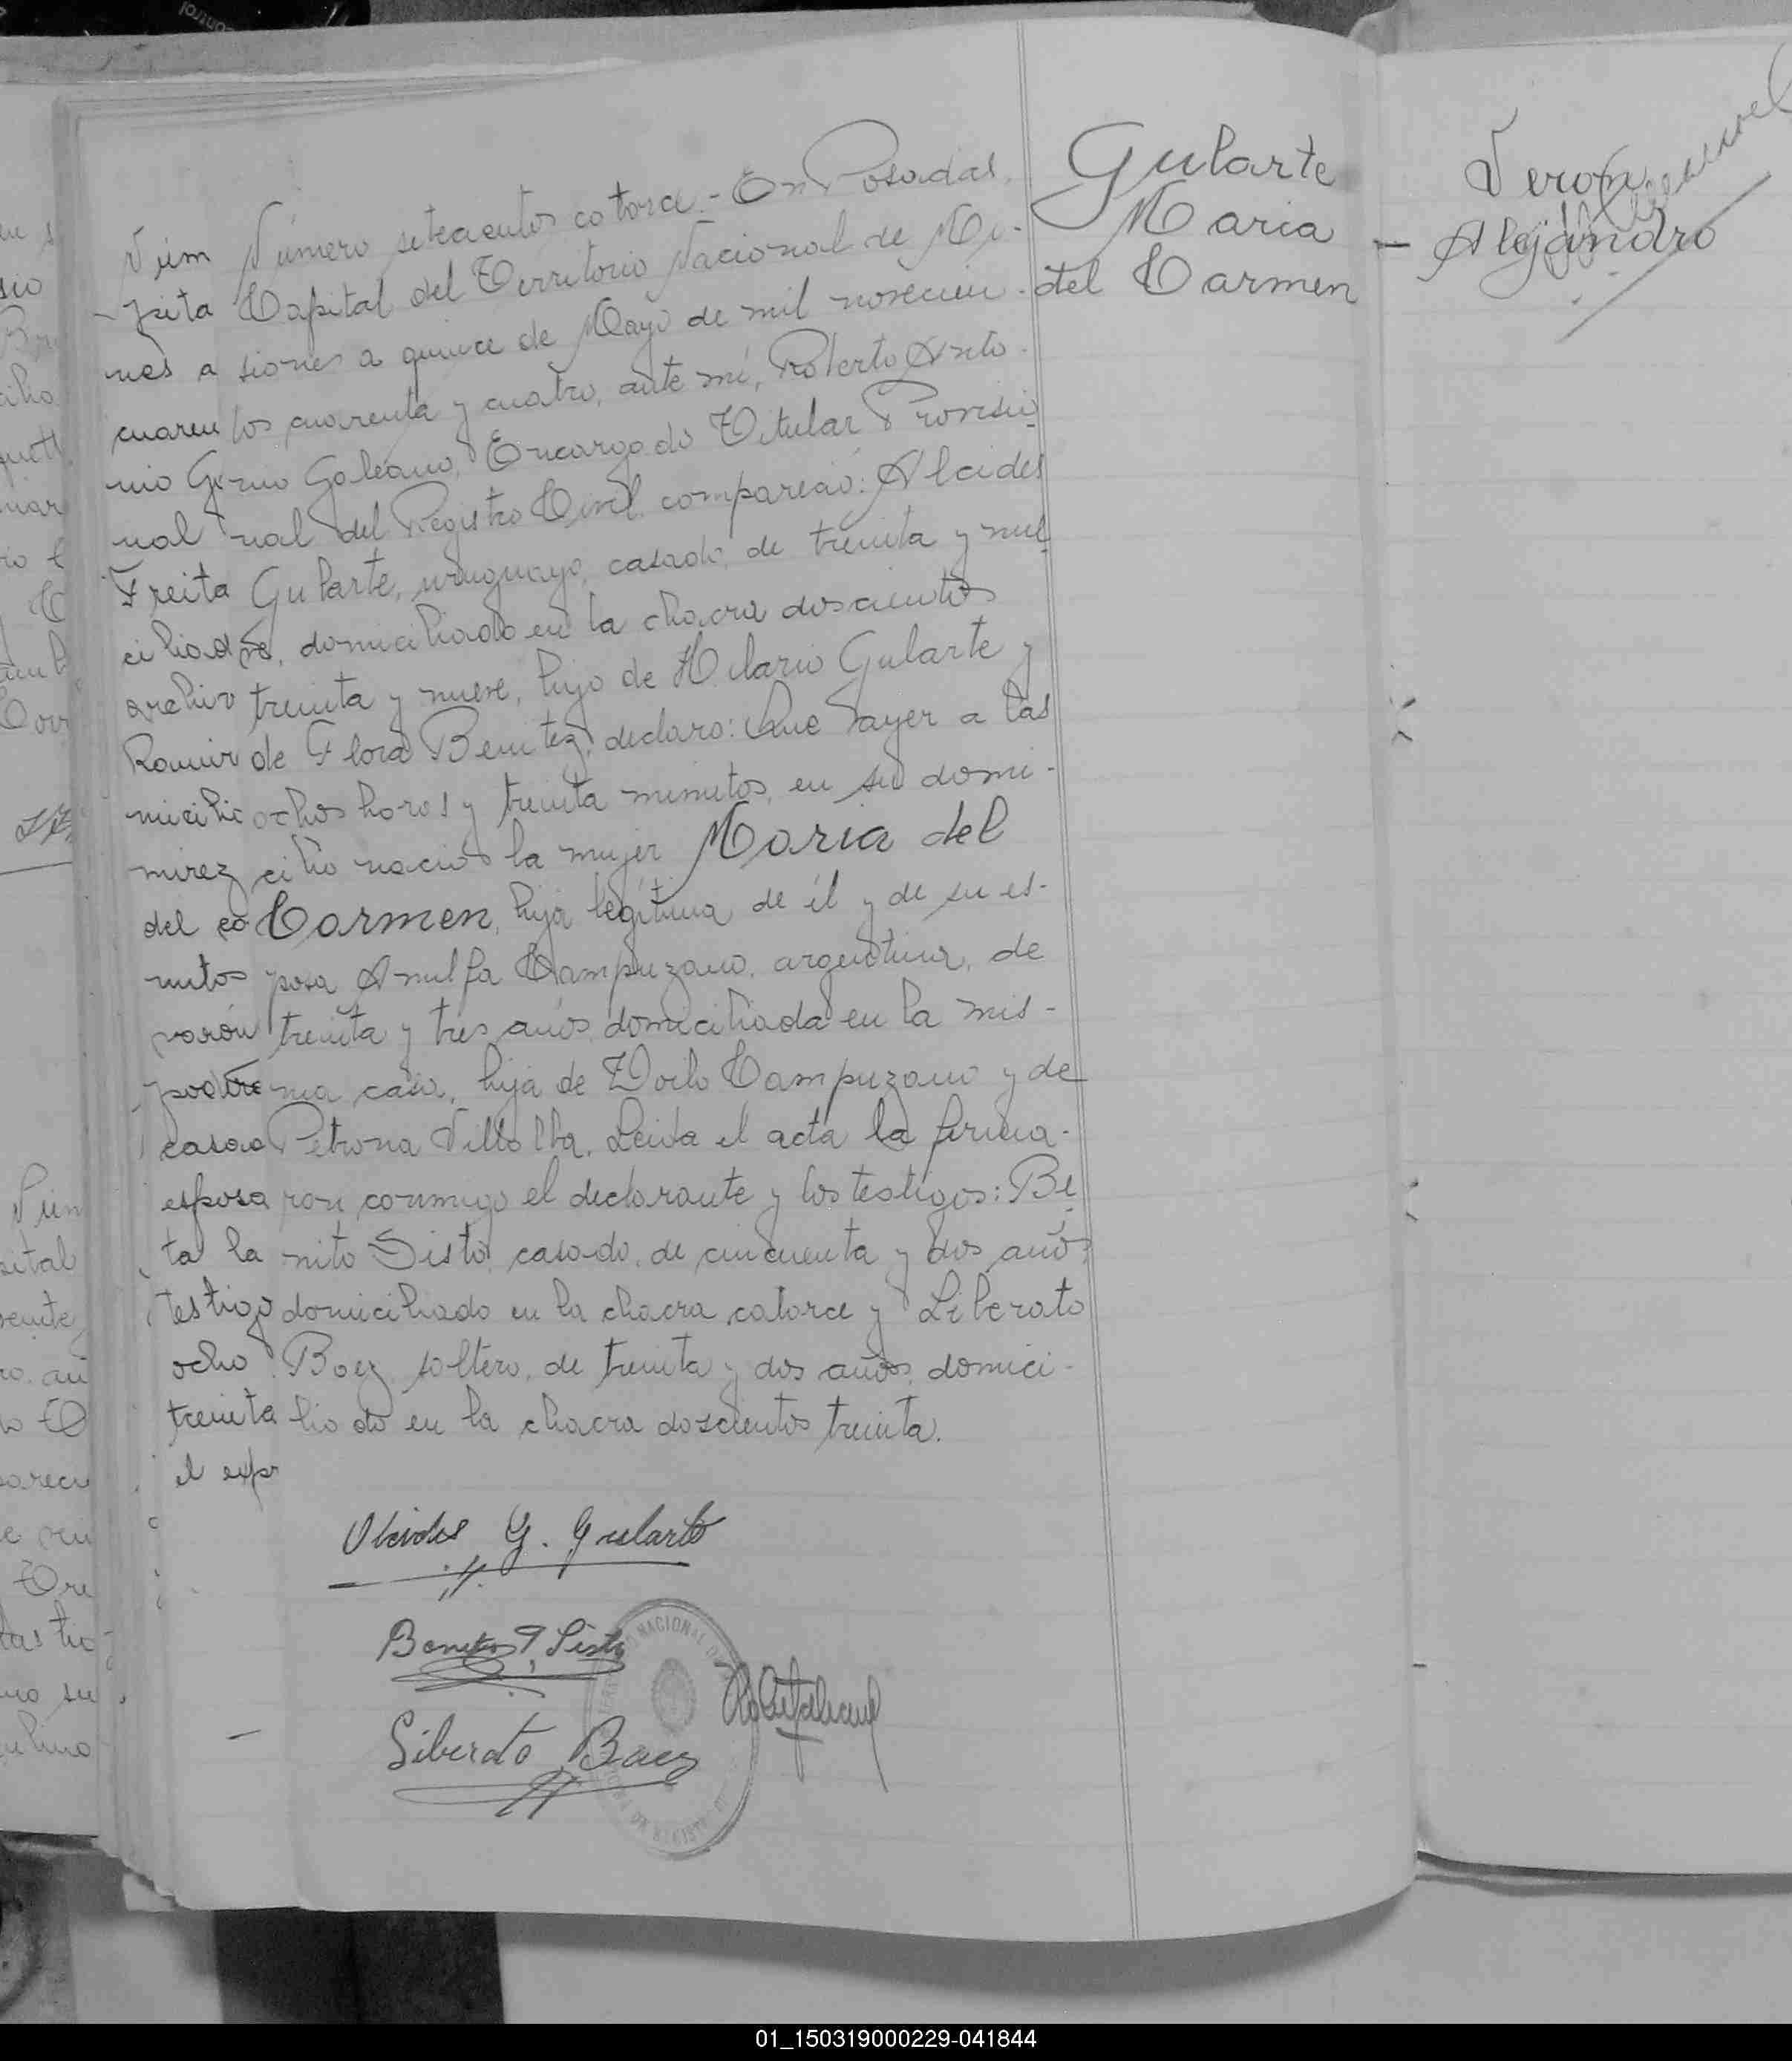 Número setecientos catorce.- En Posadas,
Capital del Territorio Nacional de Mi-
siones a quince de Mayo de mil novecien-
tos cuarenta y cuatro, ante mí, Roberto Anto-
nio Galeano, Encargado Titular Provisio-
nal del Registro Civil, compareció: Alcides
Gularte, uruguayo, casado, de treinta y
domiciliado en la chacra doscientos
treinta y nueve, hijo de Hilario Gularte y
de Flora Benitez, declaro: Que ayer a las
ochos horas y treinta minutos, en su domi-
cilio nacio la mujer Maria del
Carmen, hija legítima de él y de su es-
posa Campuzano, argentina, de
treinta y tres años, domiciliada en la mis-
ma casa, hija de Campuzano y de
Petrona Villalba. Leida el acta la firma-
ron conmigo el declarante y los testigos: Be-
nito Sisto, casado, de cincuenta y dos años,
domiciliado en la chacra catorce y Liberato
Baez, soltero, de treinta y dos años, domici-
liado en la chacra doscientos treinta.
Alcides G. Gularte
Sisto
Liberato Baez
NACIONAL
Gularte
Maria
del Carmen
Núm
pita
nes a
cuaren
nio
nal
Freita
ciliado
archivo
Ramir
micilio
mirez
del
nutos
varón
padre
casad
esposa
ta la
testigo
ocho
treinta
el expr
Veron
Alejandro
01_150319000229-041844